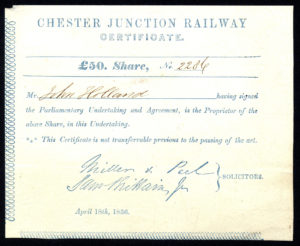 CHESTER JUNCTION RAILWAY
CERTIFICATE.
£50. Share, No. 2286
Mr. John Holland having signed
the Parliamentary Undertaking and Agreement, is the Proprietor of the
above Share, in this Undertaking.
*** This Certificate is not transferrable previous to the passing of the act.
Peel
SOLICITORS.
April 18th, 1836.